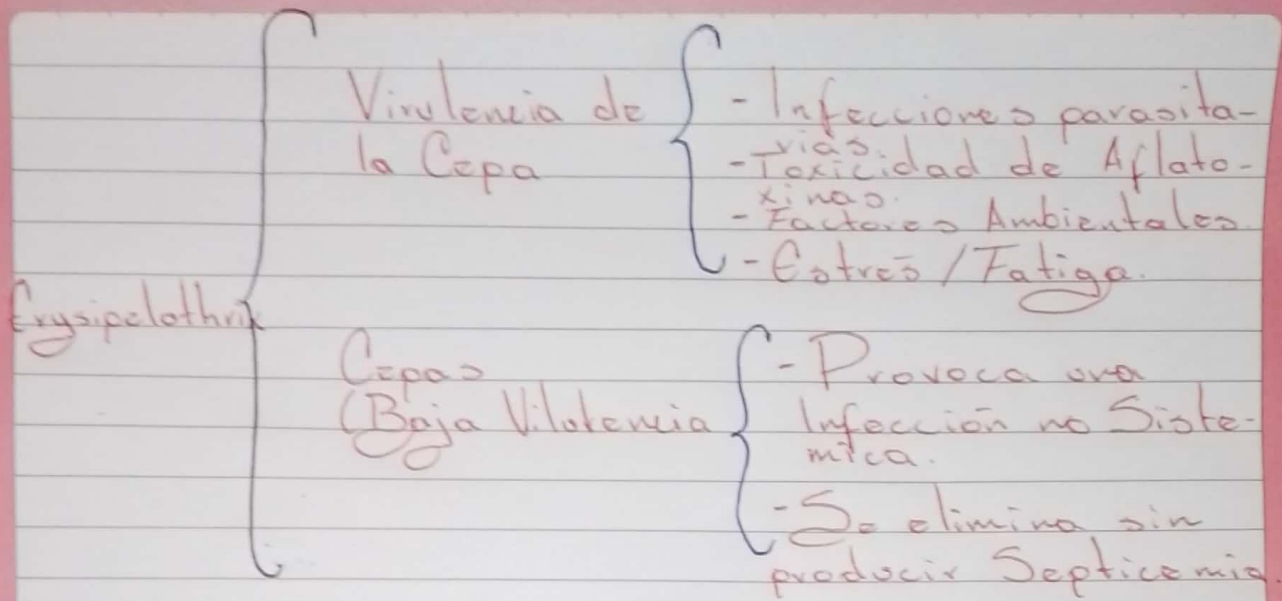 Erysipelothrix
Virulencia de
la Cepa
- Infecciones parasita-
rias.
- Toxicidad de Aflato-
xinas.
- Factores Ambientales.
- Estrés / Fatiga.
Cepas
(Baja Vilotencia
- Provoca una
Infección no Siste-
mica.
- Se elimina sin
producir Septicemia.